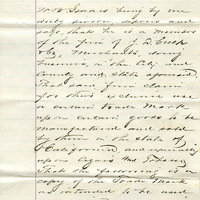 M B Isaacs being by me
duly sworn deposes and
says, that he is a member
of the firm of J. D. &
Co, Merchants, doing
business in the City and
County and State aforesaid.
That said firm claim
for their exclusive use
a certain Trade Mark
upon certain goods to be
manufactured and sold
by them in the State of
California and especially
upon Cigars and Tobacco,
That the following is a
copy of the Trade Mark
intended to be used